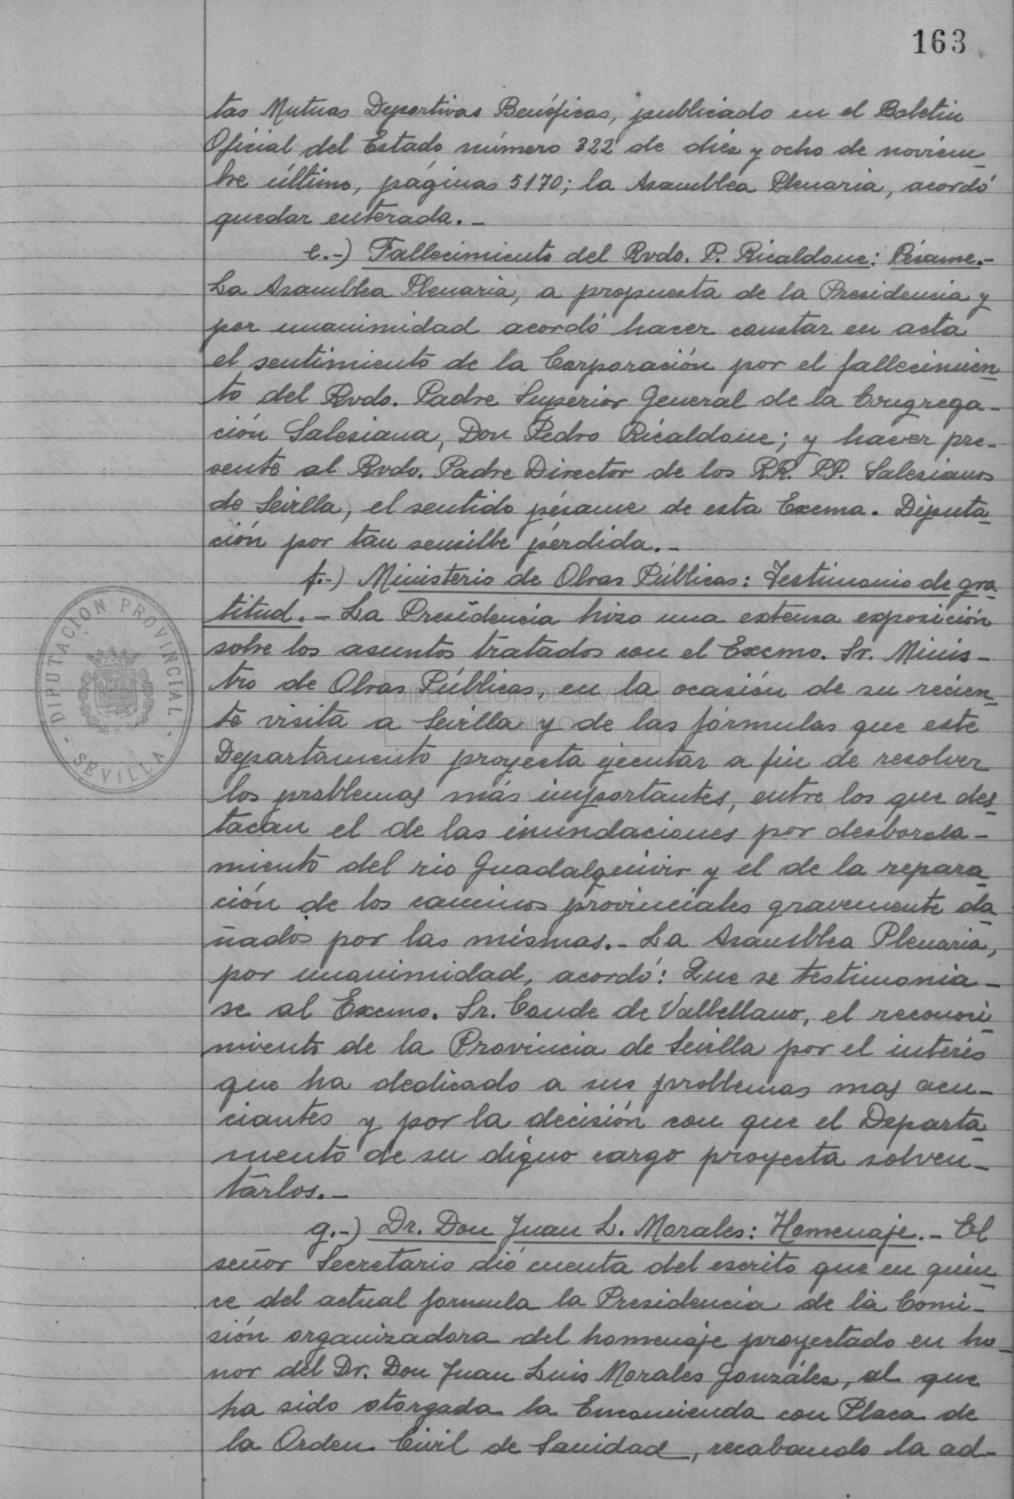 163
tas Mutuas Deportivas Benéficas, publicado en el Boletin
Oficial del Estado número 322 de diez y ocho de noviem-
bre último, páginas 5170; la Asamblea Plenaria, acordó
quedar enterada.-
e.-) Fallecimiento del Rvdo. P. Ricaldone: Pésame.-
La Asamblea Plenaria, a propuesta de la Presidencia y
por unanimidad acordó hacer constar en acta
el sentimiento de la Corporación por el fallecimien-
to del Rvdo. Padre Superior General de la Congrega-
ción Salesiana, Don Pedro Ricaldone; y hacer pre-
sente al Rvdo. Padre Director de los RR. PP. Salesianos
de Sevilla, el sentido pésame de esta Excma. Diputa-
ción por tan sensible pérdida.-
f.-) Ministerio de Obras Públicas: Testimonio de gra-
titud.- La Presidencia hizo una extensa exposición
sobre los asuntos tratados con el Excmo. Sr. Minis-
tro de Obras Públicas, en la ocasión de su recien-
te visita a Sevilla y de las fórmulas que este
Departamento proyecta ejecutar a fin de resolver
los problemas más importantes, entre los que des-
tacan el de las inundaciones por desborda-
miento del rio Guadalquivir y el de la repara-
ción de los caminos provinciales gravemente da-
ñados por las mismas.- La Asamblea Plenaria,
por unanimidad, acordó: Que se testimonia-
se al Excmo. Sr. Conde de Vallellano, el reconoci-
miento de la Provincia de Sevilla por el interés
que ha dedicado a sus problemas mas acu-
ciantes y por la decisión con que el Departa-
mento de su digno cargo proyecta solven-
tarlos.-
g.-) Dr. Don Juan L. Morales: Homenaje.- El
señor Secretario dió cuenta del escrito que en quin-
ce del actual formula la Presidencia de la Comi-
sión organizadora del homenaje proyectado en ho-
nor del Dr. Don Juan Luis Morales González, al que
ha sido otorgada la Encomienda con Placa de
la Orden Civil de Sanidad, recabando la ad-
DIPUTACION PROVINCIAL
- SEVILLA -
DIPUTACIÓN DE SEVILLA